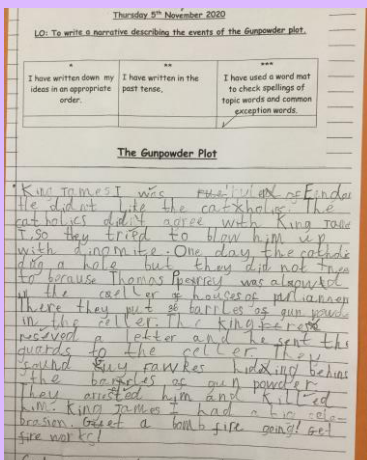 Thursday 5th November 2020
LO: To write a narrative describing the events of the Gunpowder plot.
*
I have written down my
ideas in an appropriate
order.
**
I have written in the
past tense.
***
I have used a word mat
to check spellings of
topic words and common
exception words.
The Gunpowder Plot
King James I was the ruler of
He didn't like the The
catholics didn't agree with King Jame
I. So they tried to blow him up
with dinomite. One day the
dug a hole but they did not
to because Thomas was
in the celler of houses of
There they put 36 barrles of gun
in the celler. The King
reseved a letter and he sent the
guards to the celler They
found Guy Fawkes behind
the of gun powder.
They arrested him and killed
him. King James I had a big cele-
brasion. Get a bomb fire going! Get
fire works!